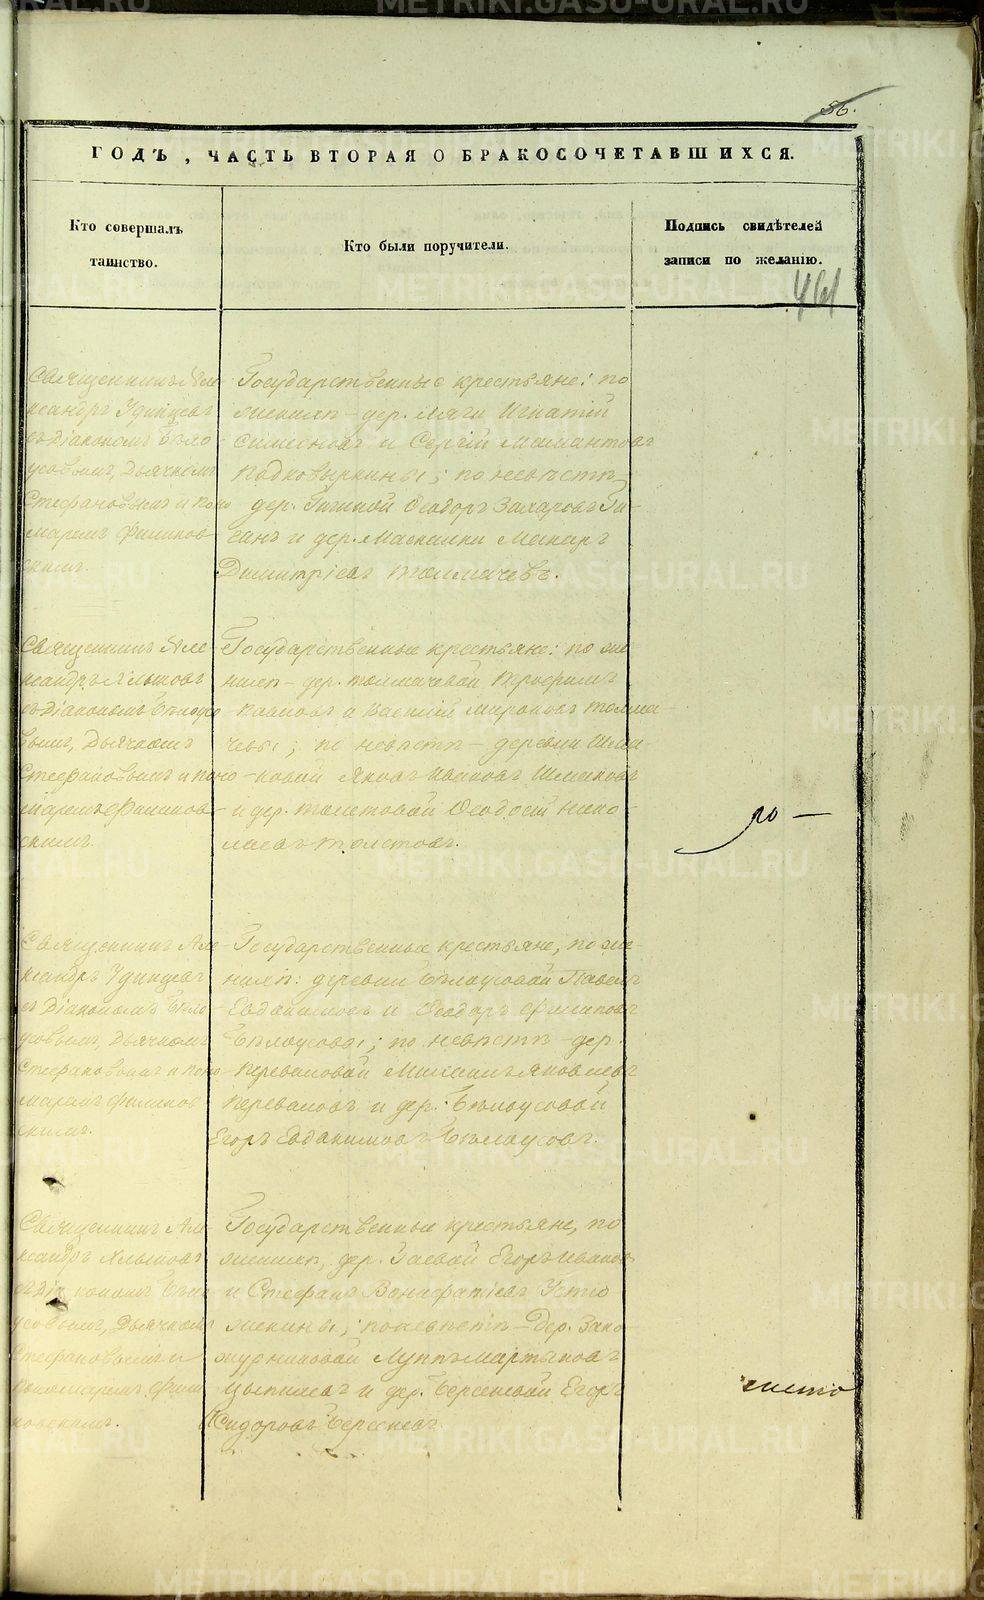 METRIKI.GASO-URAL.RU
56.
ГОДЪ, ЧАСТЬ ВТОРАЯ О БРАКОСОЧЕТАВШИХСЯ.
Кто совершалъ
таинство.
Кто были поручители.
Подпись свидѣтелей
записи по желанію.
Священникъ Але-
ксандръ Удинцевъ
съ Діакономъ Бѣло-
усовымъ, Дьячкомъ
Стефановымъ и Поно-
маремъ Филипов-
скимъ.
Государственные крестьяне: по
женихѣ – дер. Игнатій
Симеоновъ и Сергій Мамантовъ
Подковыркины; по невѣстѣ
дер. Гигиной Ѳеодоръ Захаровъ Ги-
ганъ и дер. Макаръ
Димитріевъ Толмачевъ.
Священникъ Але-
ксандръ
съ Діакономъ Бѣлоусо-
вымъ, Дьячкомъ
Стефановымъ и Поно-
маремъ Филипов-
скимъ.
Государственные крестьяне: по же-
нихѣ – дер. Толмачевой Трофимъ
Павловъ и Василій Мироновъ Толма-
чевы; по невѣстѣ – деревни Шма-
ковой Яковъ Ивановъ Шмаковъ
и дер. Толстовой Ѳеодосій Нико-
лаевъ Толстовъ.
Священникъ Але-
ксандръ Удинцевъ
съ Діакономъ Бѣло-
усовымъ, Дьячкомъ
Стефановымъ и Поно-
маремъ Филипов-
скимъ.
Государственные крестьяне, по же-
нихѣ: деревни Бѣлоусовой Павелъ
Евдокимовъ и Ѳеодоръ Филиповъ
Бѣлоусовы; по невѣстѣ – дер.
Переваловой Михаилъ Яковлевъ
Переваловъ и дер. Бѣлоусовой
Егоръ Евдокимовъ Бѣлоусовъ.
Священникъ Але-
ксандръ
съ Діакономъ Бѣло-
усовымъ, Дьячкомъ
Стефановымъ и
Пономаремъ Фили-
повскимъ.
Государственные крестьяне, по
женихѣ, дер. Гаевой Егоръ Ивановъ
и Стефанъ Вонифатіевъ Устю-
жанины; по невѣстѣ – дер. Зако-
журниковой Луппъ Мартыновъ
и дер. Берсеневой Егоръ
Сидоровъ Берсеневъ.